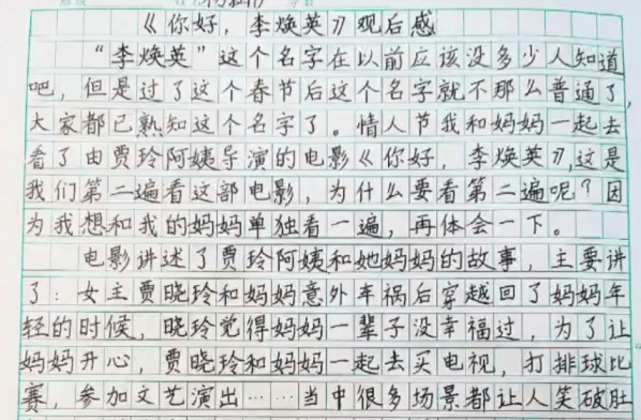 《你好，李焕英》观后感
“李焕英”这个名字在以前应该没多少人知道
吧，但是过了这个春节后这个名字就不那么普通了，
大家都已熟知这个名字了。情人节我和妈妈一起去
看了由贾玲阿姨导演的电影《你好，李焕英》，这是
我们第二遍看这部电影，为什么要看第二遍呢？因
为我想和我的妈妈单独看一遍，再体会一下。
电影讲述了贾玲阿姨和她妈妈的故事，主要讲
了：女主贾晓玲和妈妈意外车祸后穿越回了妈妈年
轻的时候，晓玲觉得妈妈一辈子没幸福过，为了让
妈妈开心，贾晓玲和妈妈一起去买电视，打排球比
赛，参加文艺演出……当中很多场景都让人笑破肚